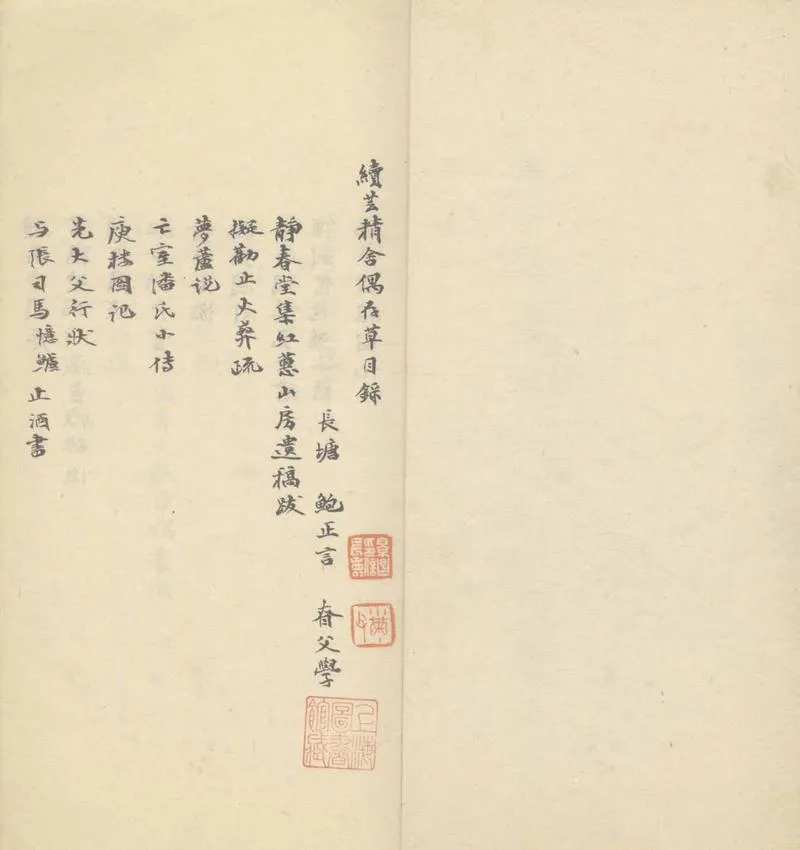 續芸精舍偶存草目錄
長塘 鮑正言 春父學
靜春堂集紅蕙山房遺稿跋
擬勸止火葬疏
夢蘆說
亡室潘氏小傳
庚秋圖記
先大父行狀
与張司馬憶鱸止酒書
上海圖書館藏